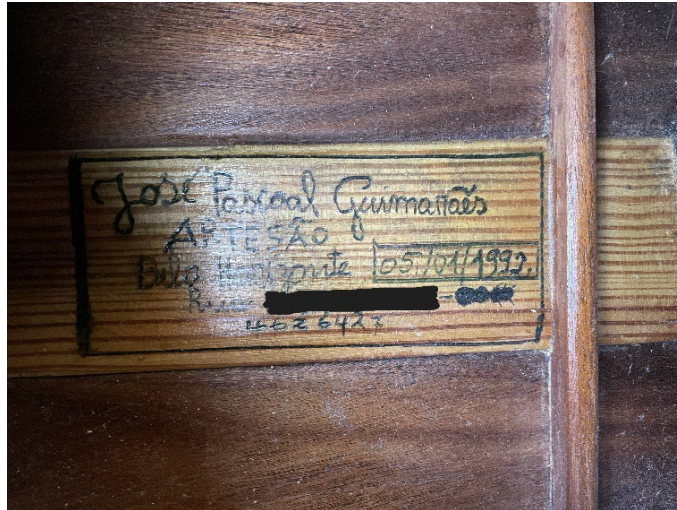 José Pascoal Guimarães
ARTESÃO
Belo Horizonte 05/01/1992.
Rua
4626427